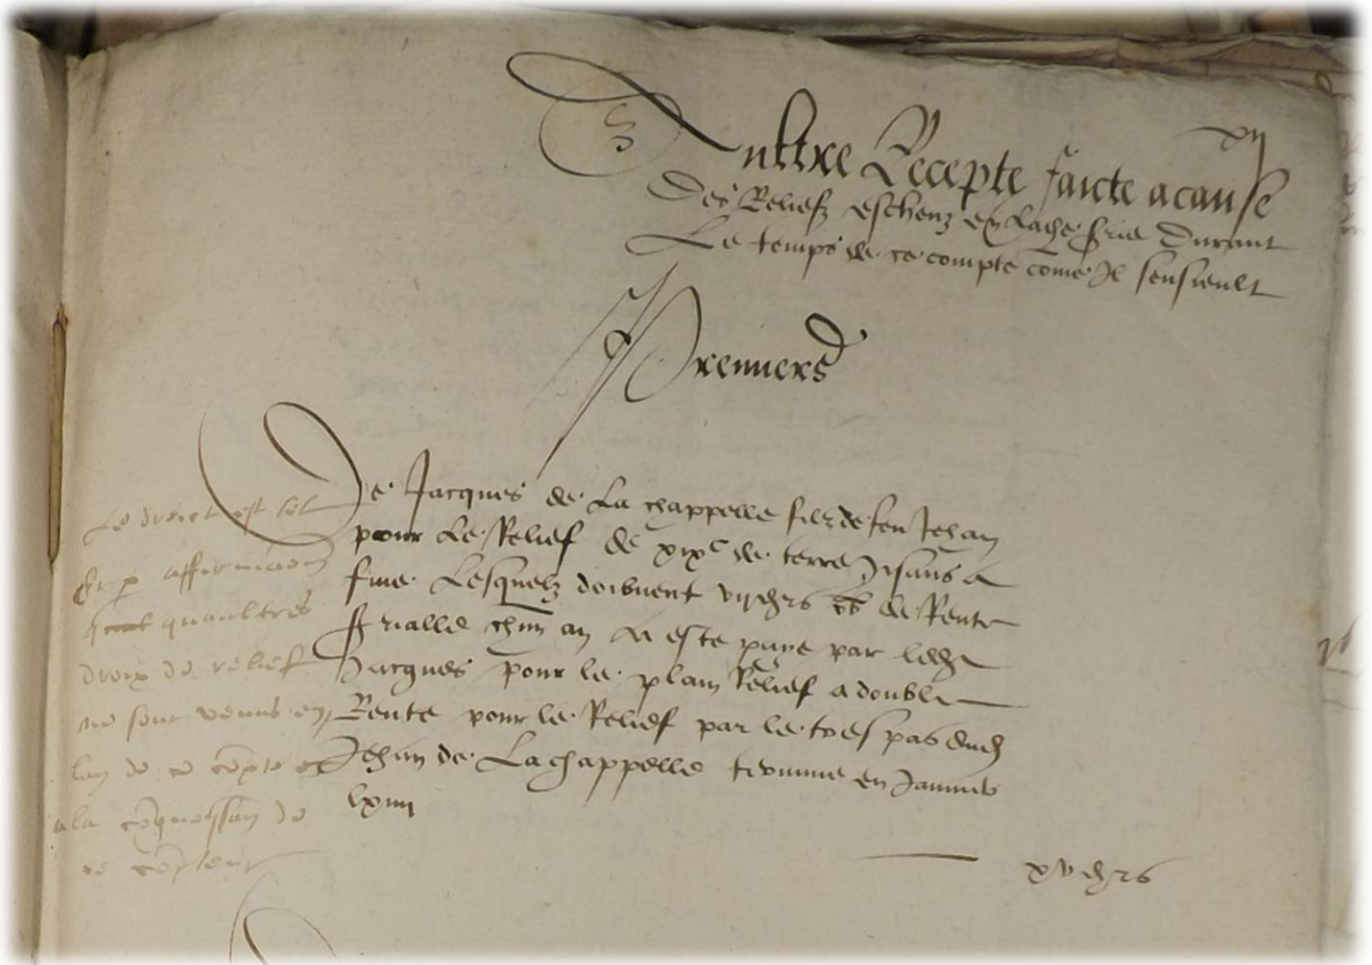 xij
Aultre Recepte faicte a cause
Des Reliefz escheuz en lad. srie Durant
Le temps de ce compte come Il sensieult
Premiers
De Jacques de La chappelle filz de feu Jehan
pour Le Relief de xix c de terre Gisans a
Lesquelz doibvent de Rente
srialle chun an A este paye par led.
Jacques pour le plain Relief a double
Rente pour le Relief par le trespas dud.
Jehan de La chappelle en Janvier
lxiiii
xv
Le droict est tel
Et p affirmation
quaultres
droix de relief
ne sont venus en
lan de ce compte et
a la de
ce compteur